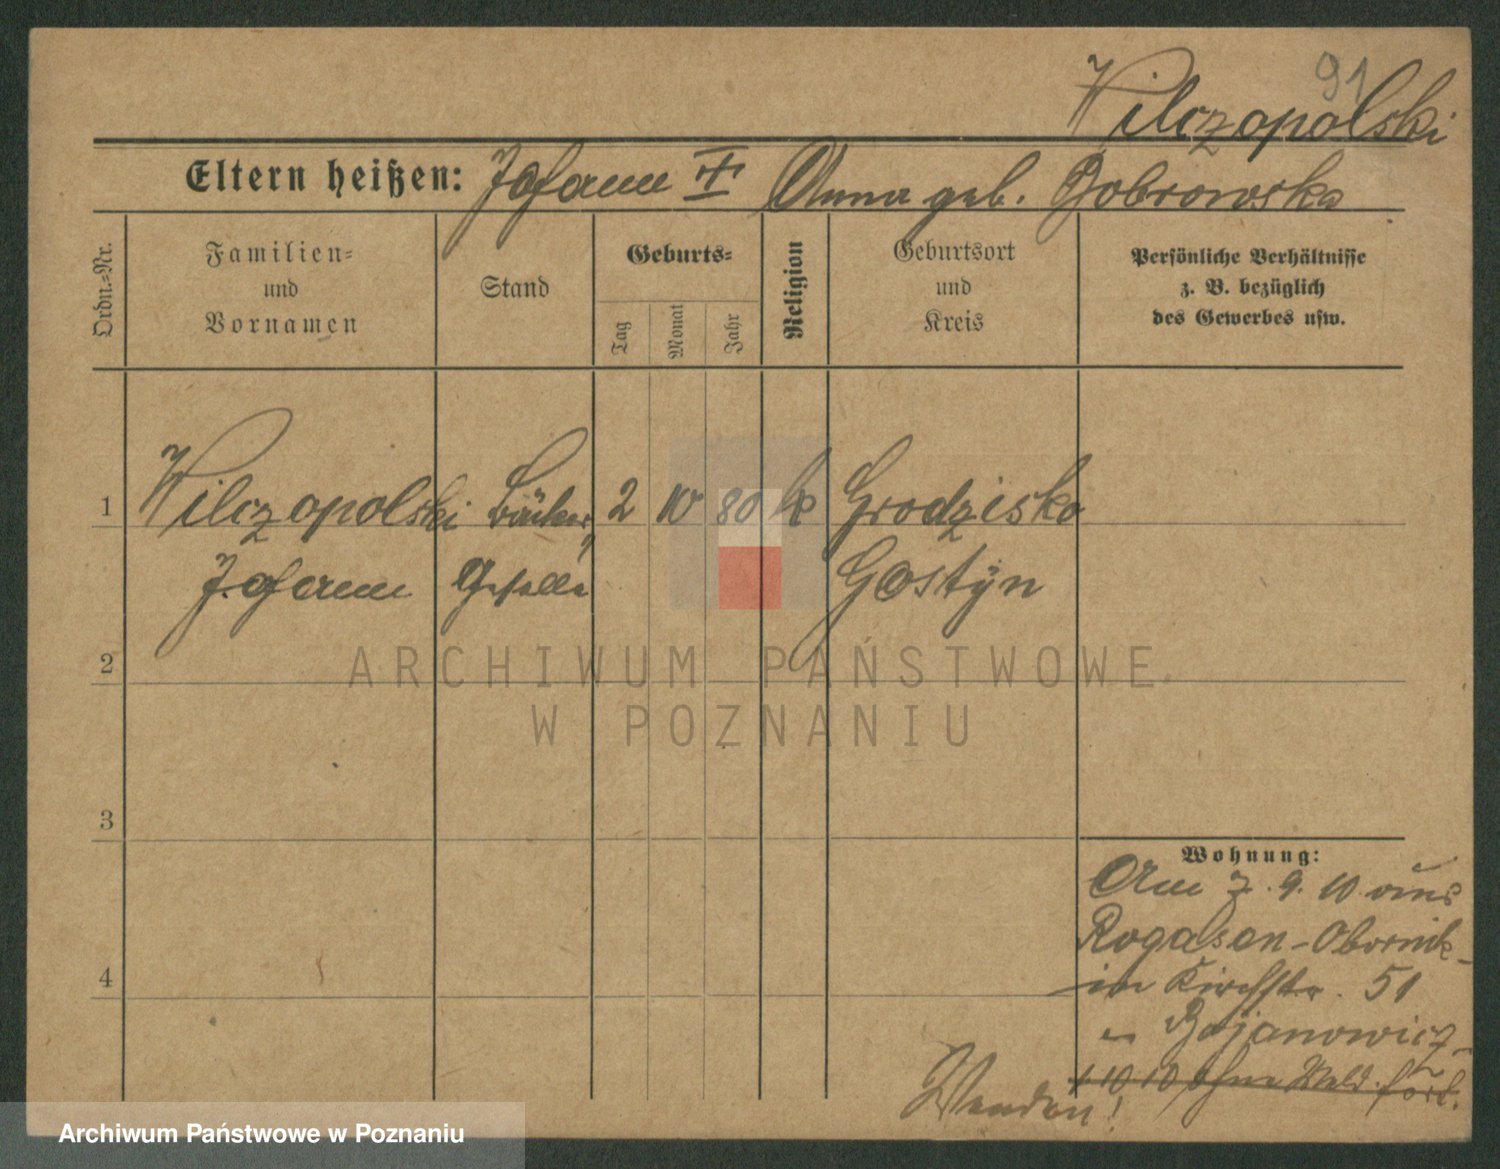 91
Wilczopolski
Eltern heißen: Johann Anna geb. Bobrowska
Ordn.-Nr.
Familien-
und
Vornamen
Stand
Geburts-
Tag
Monat
Jahr
Religion
Geburtsort
und
Kreis
Persönliche Verhältnisse
z. B. bezüglich
des Gewerbes usw.
1 Wilczopolski Bäcker 2 10 80 k Grodzisko
Johann Geselle Gostyn
2
3
4
ARCHIWUM PAŃSTWOWE
W POZNANIU
Wohnung:
Am 7. 9. 10 aus
Rogasen-Obornik
in Kirchstr. 51
Bojanowicz
1 10 10 ohne Meld. fort.
Wenden!
Archiwum Państwowe w Poznaniu